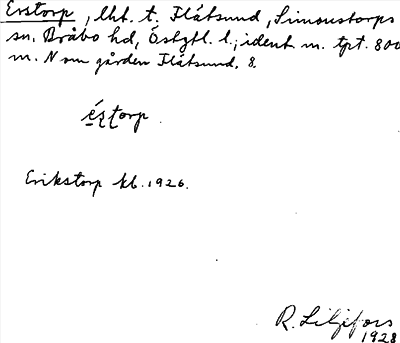 Erstorp, lht. t. Flåtsund, Simonstorps
sn. Bråbo hd, Östgtl. l.; ident m. tpt. 800
m. N om gården Flåtsund. 8.
éştorp
Erikstorp kb. 1926.
R. Liljefors
1928